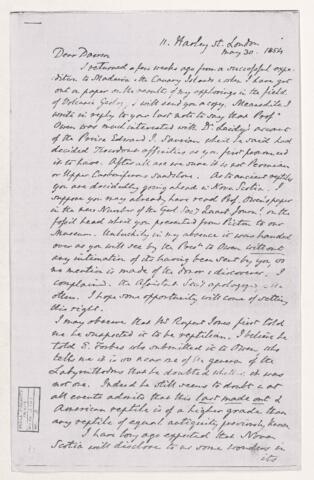 11. Harley St. London
May 30. 1854
Dear Dawson
I returned a few weeks ago from a successful expe-
dition to Madeira & the Canary Islands & when I have got
out a paper on the result of my explorings in the field
of Volcanic Geoly. I will send you a copy. Meanwhile I
write in reply to your last note to say that Profr.
Owen was much interested with Dr. Leidy's account
of the Prince Edward I. Saurian which he said had
decided Thecodont affinities as you first pronounced
it to have. After all are we sure it is not Permian
or Upper Carboniferous sandstone. As to ancient reptiles
you are decidedly going ahead in Nova Scotia. I
suppose you may already have read Prof. Owen's paper
in the new Number of the Geol. Soc.s Quart. Journ. on the
fossil head which you presented from Pictou to our
Museum. Unluckily in my absence it was handed
over as you will see by the Procs. to Owen without
any intimation of its having been sent by you so
no mention is made of the donor & discoverer. I
complained. The Assistant Secy apologized
others. I hope some opportunity will come of setting
this right.
I may observe that Mr Rupert Jones first told
me he suspected it to be reptilian. I believe he
told E. Forbes who submitted it to Owen who
tells me it is so near one of the genera of the
Labyrinthodons that he doubted whether it was
not one. Indeed he still seems to doubt & at
all events admits that this last made out
American reptile is of a higher grade than
any reptile of equal antiquity previously known
I have long ago expected that Nova
Scotia will disclose to us some wonders in
its